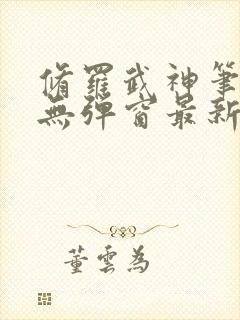 脩羅武神筆
無彈窗最新
董雲為